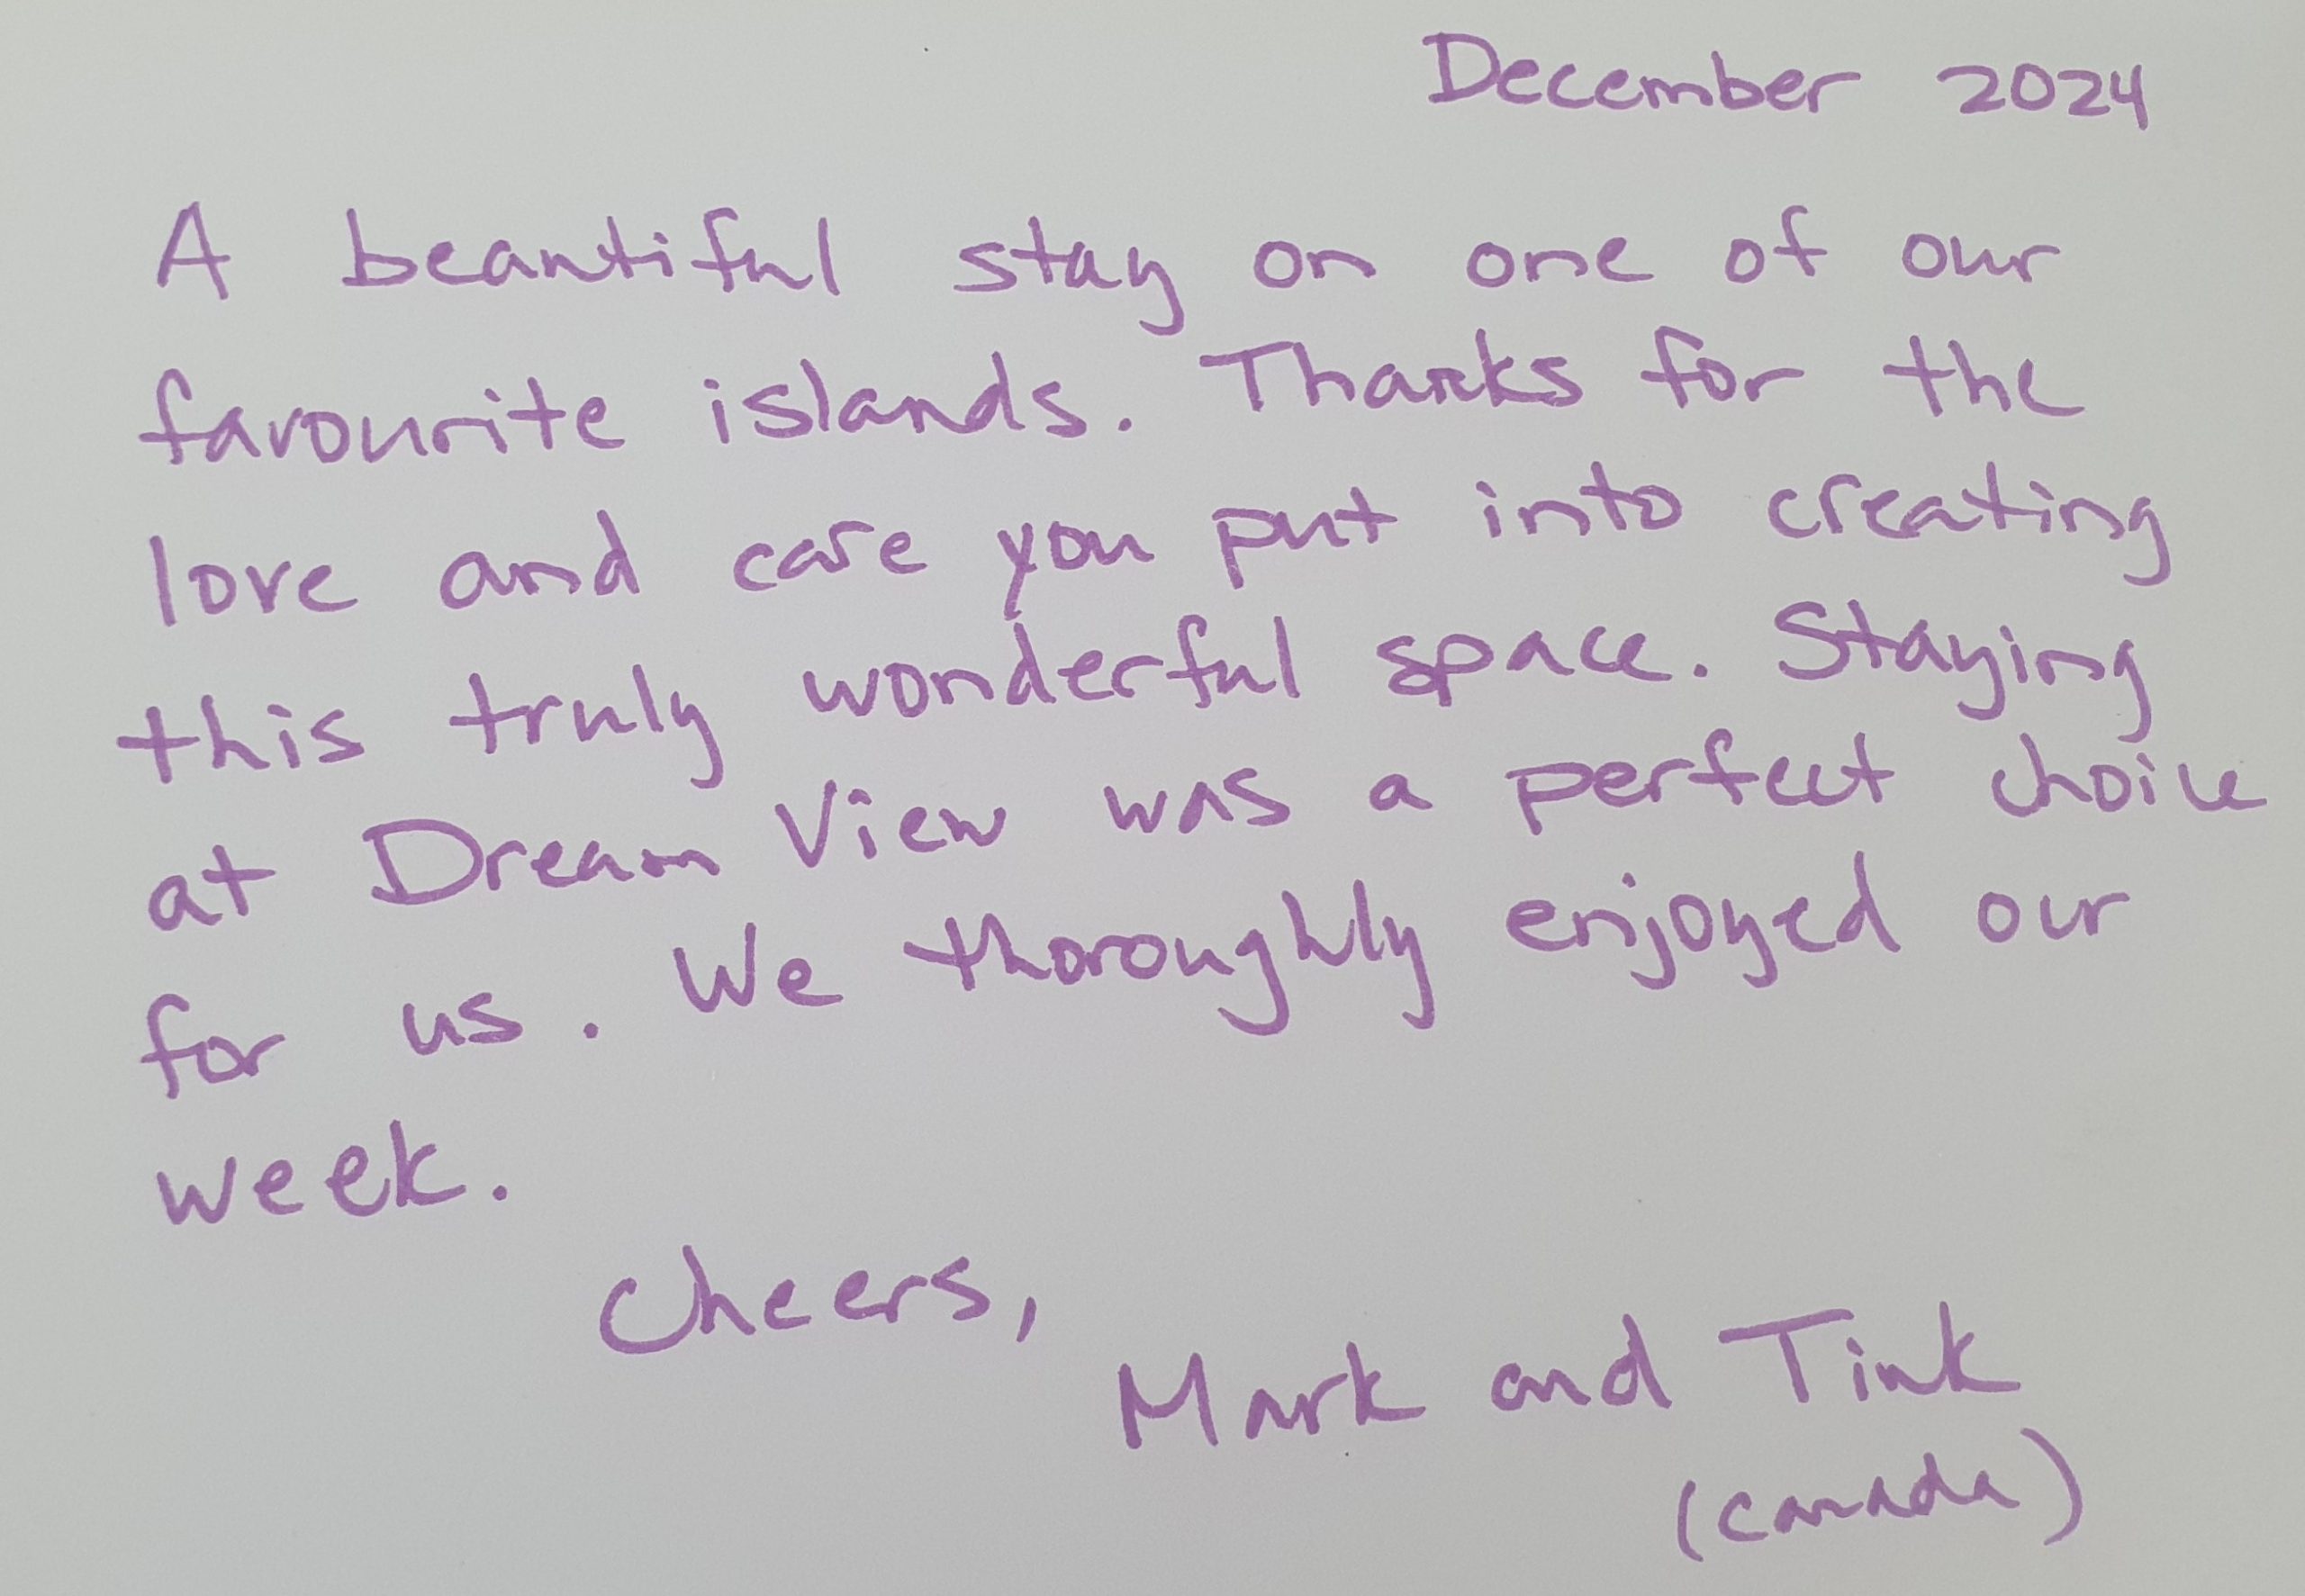 December 2024
A beautiful stay on one of our
favourite islands. Thanks for the
love and care you put into creating
this truly wonderful space. Staying
at Dream View was a perfect choice
for us. We thoroughly enjoyed our
week.
Cheers,
Mark and Tink
(Canada)